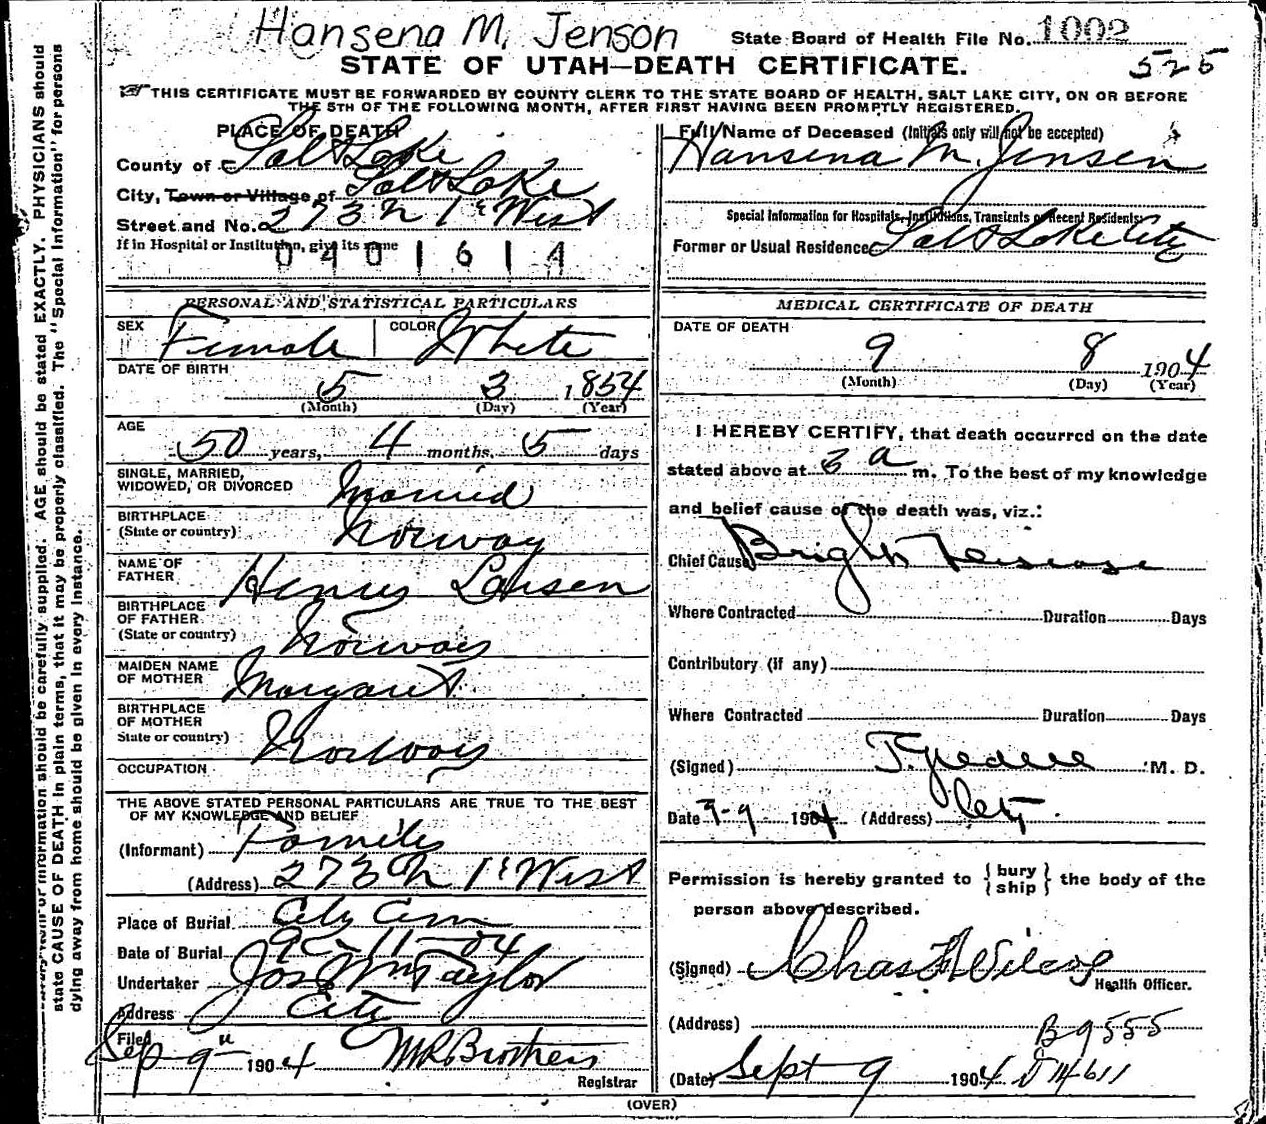 Hansena M. Jenson
State Board of Health File No. 1002
525
STATE OF UTAH—DEATH CERTIFICATE.
THIS CERTIFICATE MUST BE FORWARDED BY COUNTY CLERK TO THE STATE BOARD OF HEALTH, SALT LAKE CITY, ON OR BEFORE
THE 5TH OF THE FOLLOWING MONTH, AFTER FIRST HAVING BEEN PROMPTLY REGISTERED.
PLACE OF DEATH
County of Salt Lake
City, Town or Village of Salt Lake
Street and No. 273 N 1st West
if in Hospital or Institution, give its name
0401614
PERSONAL AND STATISTICAL PARTICULARS
SEX Female COLOR White
DATE OF BIRTH
5 3 1854
(Month) (Day) (Year)
AGE
50 years, 4 months, 5 days
SINGLE, MARRIED,
WIDOWED, OR DIVORCED Married
BIRTHPLACE
(State or country) Norway
NAME OF
FATHER Henry Larsen
BIRTHPLACE
OF FATHER
(State or country) Norway
MAIDEN NAME
OF MOTHER Margaret
BIRTHPLACE
OF MOTHER
State or country) Norway
OCCUPATION
THE ABOVE STATED PERSONAL PARTICULARS ARE TRUE TO THE BEST
OF MY KNOWLEDGE AND BELIEF
(Informant) Family
(Address) 273 N 1st West
Place of Burial City Cem
Date of Burial 9-11-04
Undertaker Jos Wm Taylor
Address City
Filed
Sep 9th 1904 Brothers
Registrar
Full Name of Deceased (Initials only will not be accepted)
Hansena M. Jensen
Special Information for Hospitals, Institutions, Transients or Recent Residents:
Former or Usual Residence Salt Lake City
MEDICAL CERTIFICATE OF DEATH
DATE OF DEATH
9 8 1904
(Month) (Day) (Year)
I HEREBY CERTIFY, that death occurred on the date
stated above at 3 a m. To the best of my knowledge
and belief cause of the death was, viz.:
Chief Cause Brights Disease
Where Contracted Duration Days
Contributory (if any)
Where Contracted Duration Days
(Signed) M. D.
Date 9-9- 1904 (Address) City
Permission is hereby granted to {bury
ship} the body of the
person above described.
(Signed) Chas Wilcox
Health Officer.
(Address)
B9555
(Date) Sept 9 1904 D 14611
(OVER)
state CAUSE OF DEATH in plain terms, that it may be properly classified. The "Special Information" for persons
dying away from home should be given in every instance.
information should be carefully supplied. AGE should be stated EXACTLY. PHYSICIANS should